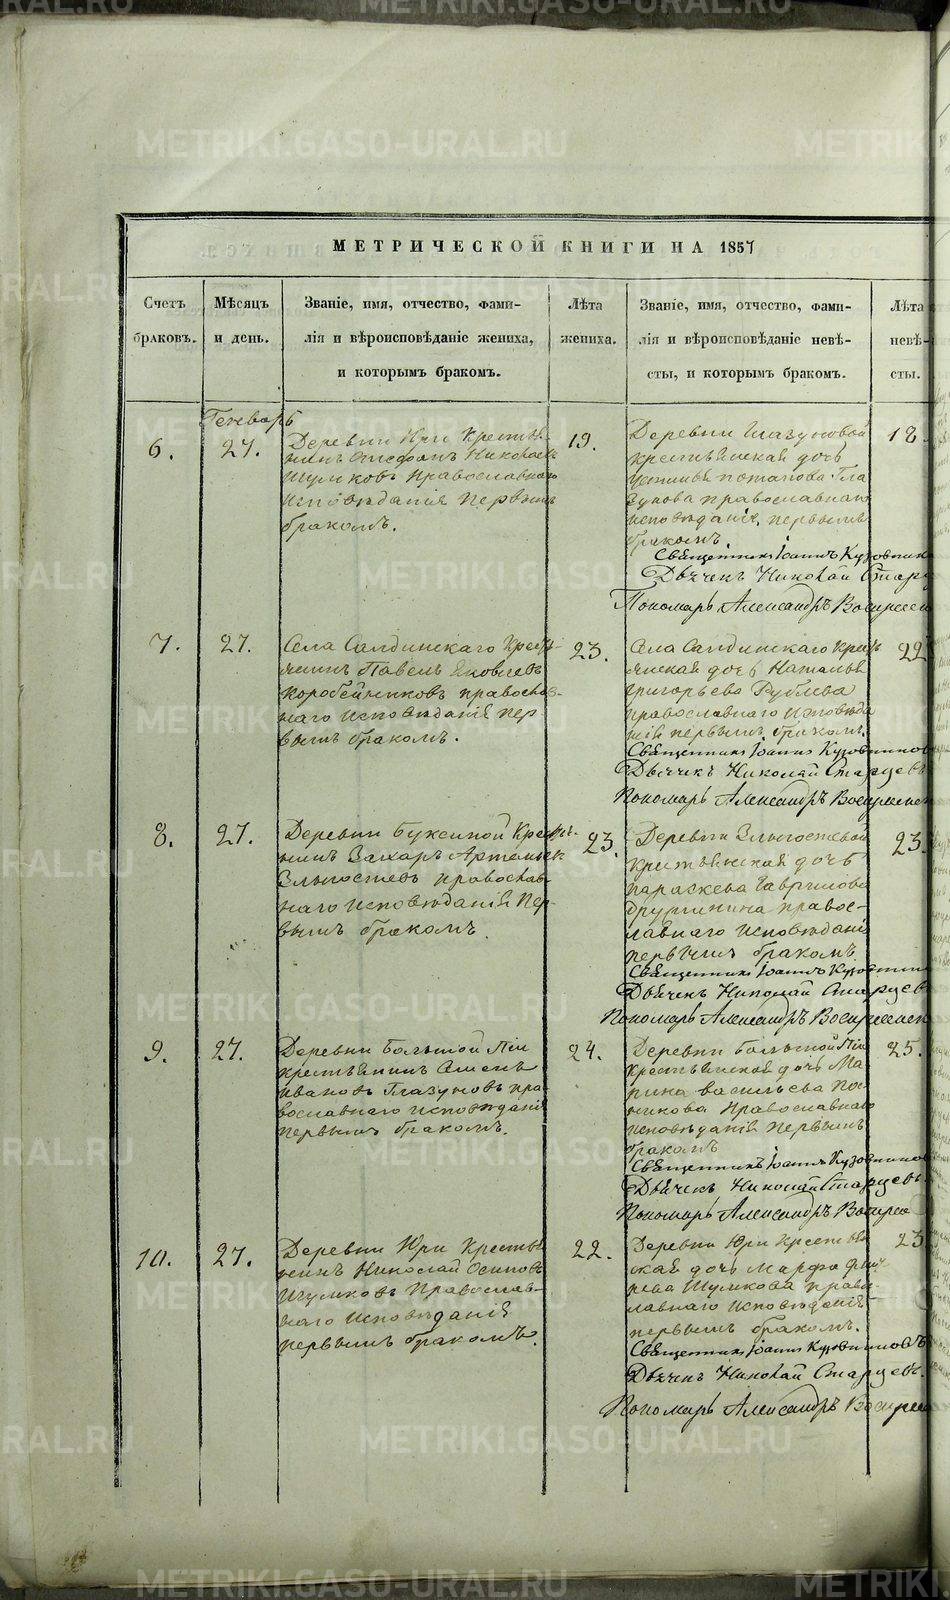 МЕТРИЧЕСКОЙ КНИГИ НА 1857
Счетъ
браковъ.
Мѣсяцъ
и день.
Званіе, имя, отчество, фами-
лія и вѣроисповѣданіе жениха,
и которымъ бракомъ.
Лѣта
жениха.
Званіе, имя, отчество, фами-
лія и вѣроисповѣданіе невѣ-
сты, и которымъ бракомъ.
Лѣта
невѣ-
сты.
Генварь
6.
27.
Деревни Юри Крестья-
нинъ Николаевъ
Шумковъ Православнаго
Исповѣданія Первымъ
бракомъ.
19.
Деревни Глазуновой
крестьянская дочь
Устинья Потапова Гла
зунова православнаго
исповѣданія, первымъ
бракомъ
18.
Священникъ Іоаннъ Кузовников
Дьячекъ Николай Старц
Пономарь Александръ Воскресен
7.
27.
Села Салдинскаго Кресть-
янинъ Павелъ Яковлевъ
Коробейниковъ православ-
наго Исповѣданія пер
вымъ бракомъ.
23.
Села Салдинскаго Кресть
янская дочь Наталья
Григорьева Рублева
православнаго Исповѣда
нія первымъ бракомъ.
22
Священникъ Іоаннъ Кузовников
Дьячекъ Николай Старцевъ
Пономарь Александръ Воскресенск
8.
27.
Деревни Буксиной Кресть-
янинъ Захаръ Артемьев
Злыгостевъ православ
наго Исповѣданія Пер-
вымъ бракомъ.
23.
Деревни Злыгостевой
крестьянская дочь
Параскева Гаврилова
Дружинина правос-
лавнаго Исповѣдані
первымъ бракомъ
23.
Священникъ Іоаннъ Кузовник
Дьячекъ Николай Старцев
Пономарь Александръ Воскресенск
9.
27.
Деревни Большой Піи
крестьянинъ Семенъ
Ивановъ Глазуновъ пра
вославнаго исповѣданія
первымъ бракомъ.
24.
Деревни Большой Піи
Крестьянская дочь Ма
рина Васильева
Православнаго
исповѣданія Первымъ
бракомъ
25.
Священникъ Іоаннъ Кузовников
Дьячекъ Николай Старцевъ.
Пономарь Александръ Воскресе
10.
27.
Деревни Юри Крестья
нинъ Николай Осиповъ
Шумковъ Православ-
наго Исповѣданія
первымъ бракомъ.
22.
Деревни Юри Крестьян
ская дочь Марфа
Шумкова право
лавнаго исповѣданія
первымъ бракомъ.
23
Священникъ Іоаннъ Кузовниковъ
Дьячекъ Николай Старцевъ.
Пономарь Александръ Воскресе
METRIKI.GASO-URAL.RU